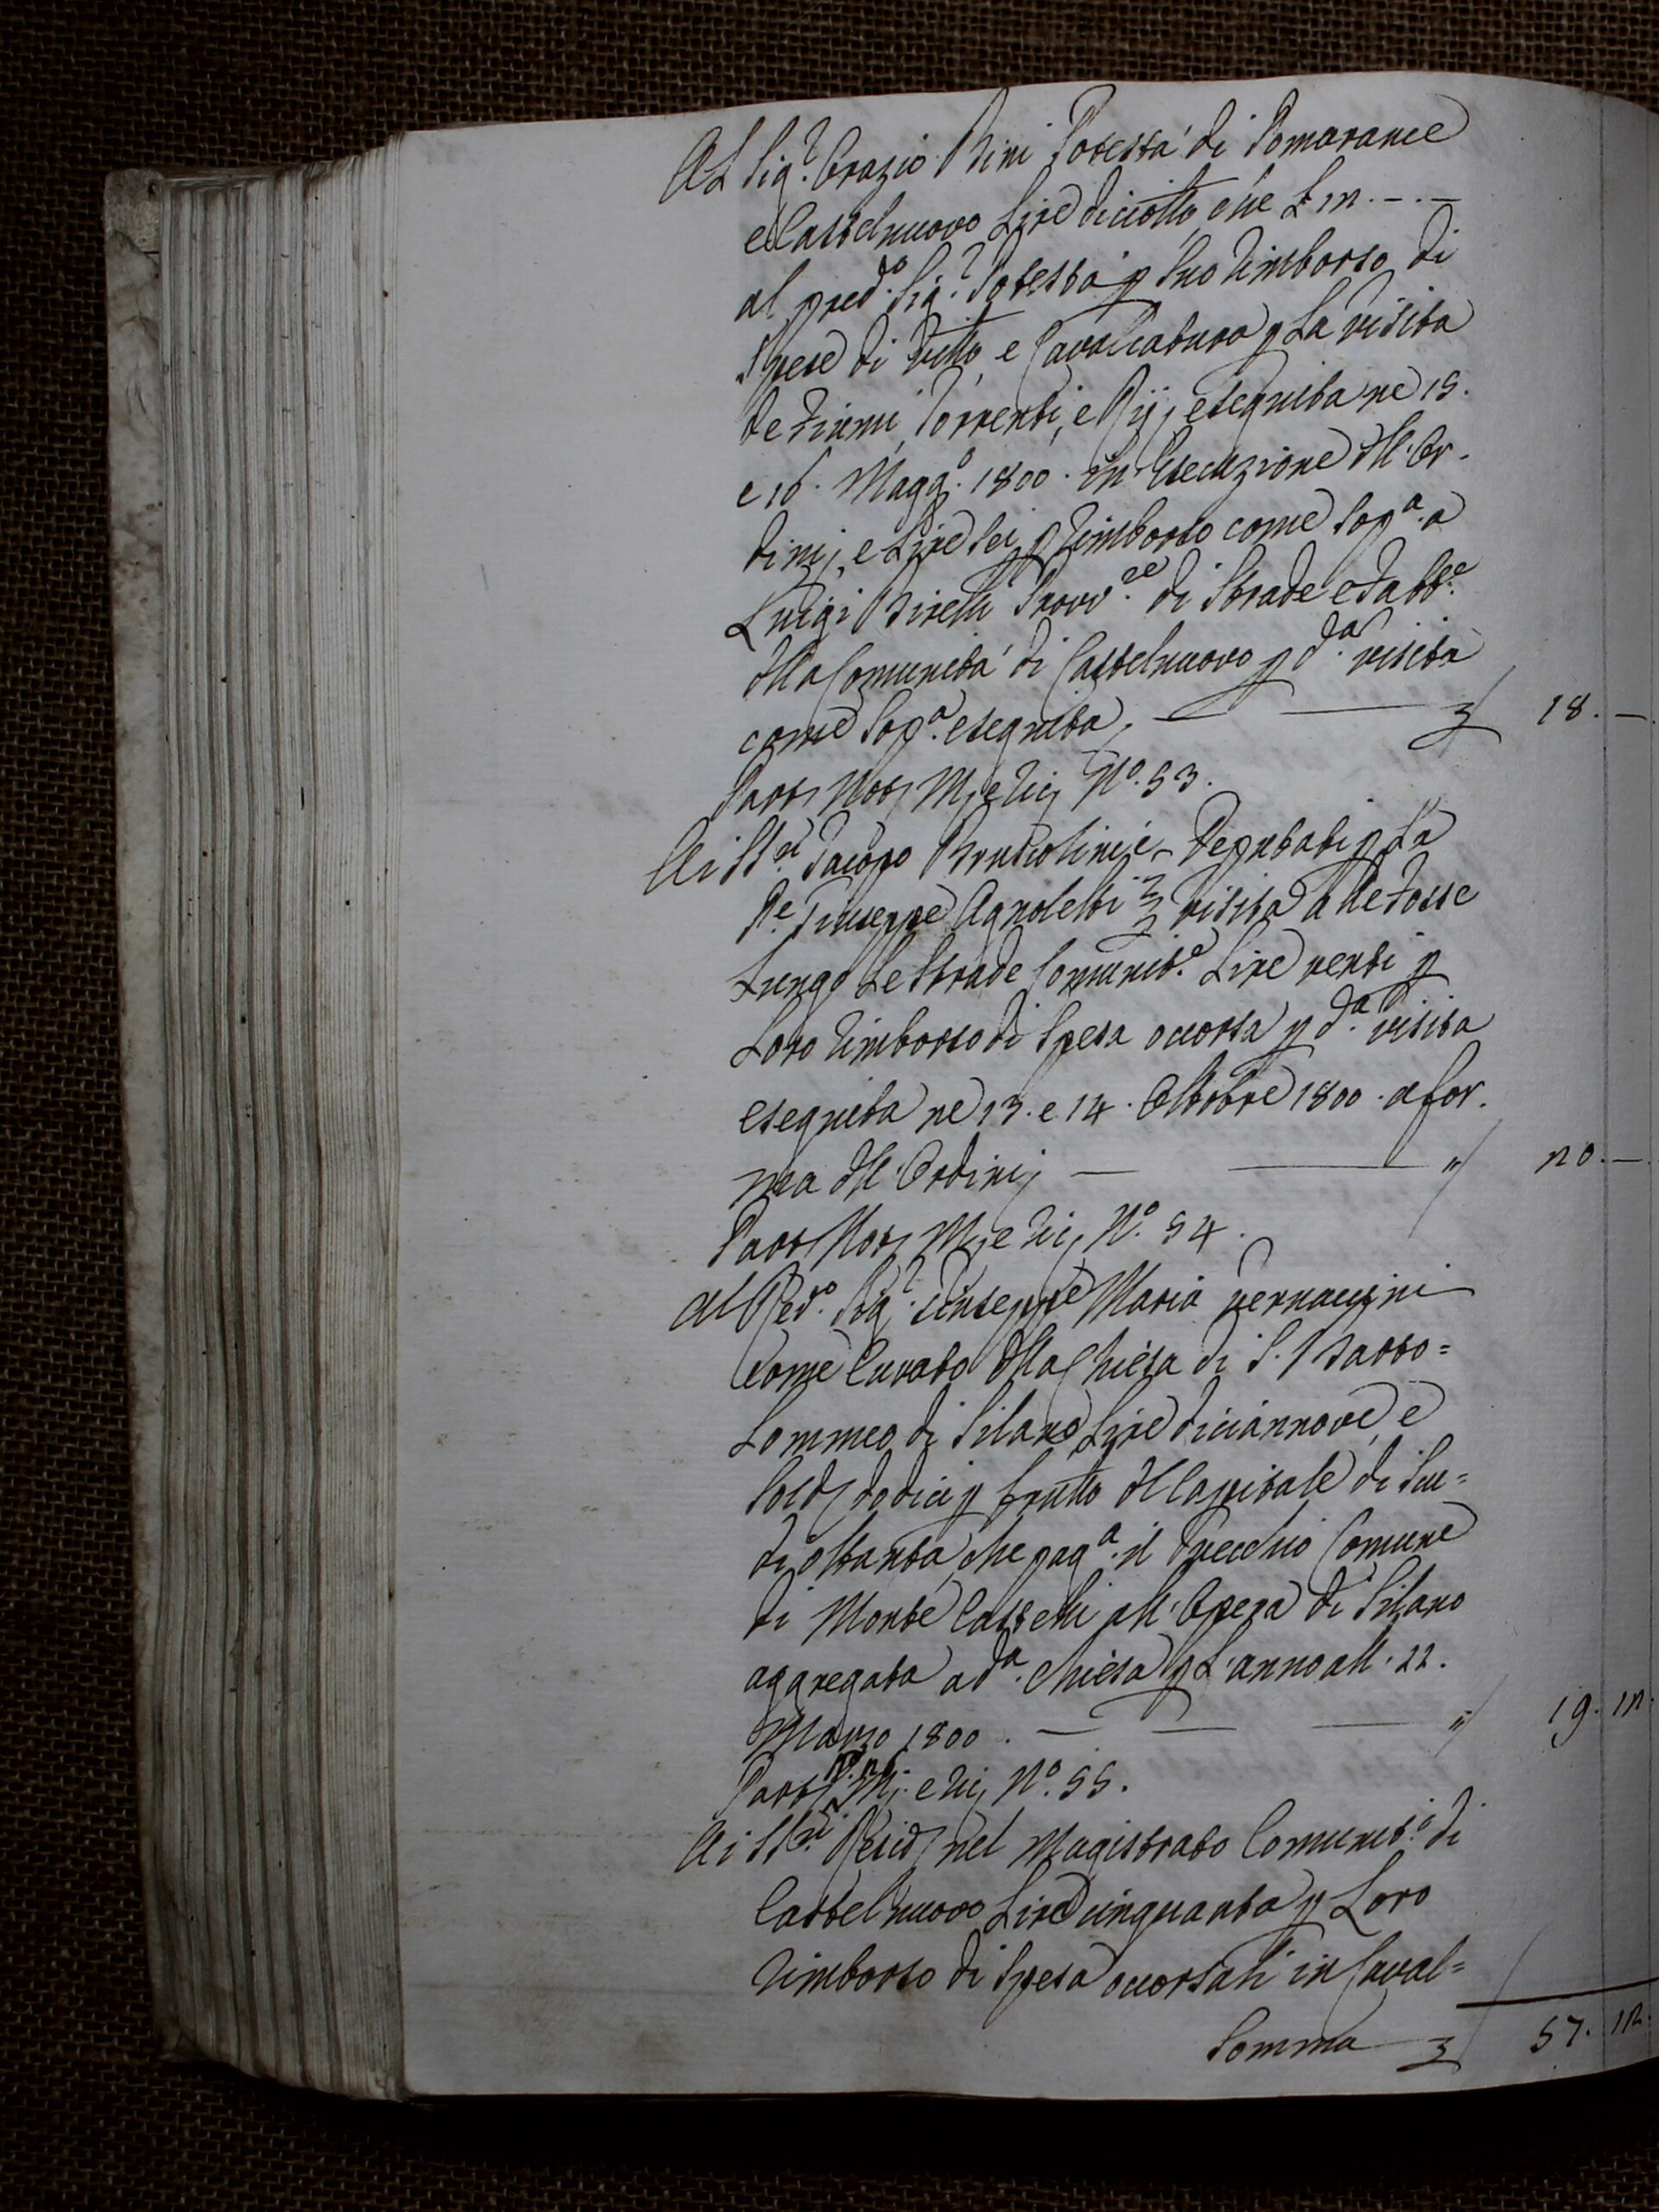 Al Sig.r Orazio Bini Potestà di Pomarance
e Castelnuovo Lire diciotto, cioè £ 12. -. -
al pred.o Sig.r Potestà p Suo rimborso di
Spese di vitto, e Cavalcatura p La visita
de Fiumi, Torrenti, e Rij, eseguita ne 15.
e 16. Magg.o 1800. in Esecuzione dll'Or-
dinj, e Lire Sei p rimborso come Sop.a a
Luigi Birelli Provv.re di Strade e Fabb.e
dlla Comunità di Castelnuovo p d.a visita
come Sop.a eseguita, — — £ 18. —
Part Not M, e Ric N.o 53.
Ai SS.ri Jacopo Bruscolini, e Deputati p La
P.e Giuseppe Agnoletti visita alle Fosse
Lungo Le Strade Comunit.e Lire venti p
Loro rimborso di Spesa occorsa p d.a visita
eseguita ne 13. e 14. Ottobre 1800. a for-
ma dll'Ordinj — — " 20. —
Part Not M, e Ric N.o 54.
Al Rev.o Sig.r Giuseppe Maria Vernaccini
Come Curato dlla Chiesa di S. Barto=
Lommeo di Silano Lire diciannove, e
Sold dodici p frutto dl Capitale di Scu=
di ottanta, che pag.a il Vecchio Comune
di Monte Castelli all'Opera di Silano
aggregata a d.a Chiesa p L'anno all. 22.
Marzo 1800. — — — " 19. 12.
Part M, e Ric N.o 55.
Ai SS.ri Resid nel Magistrato Comunit.o di
Castelnuovo Lire Cinquanta p Loro
rimborso di Spesa occorsali in Caval=
Somma £ 57. 12.